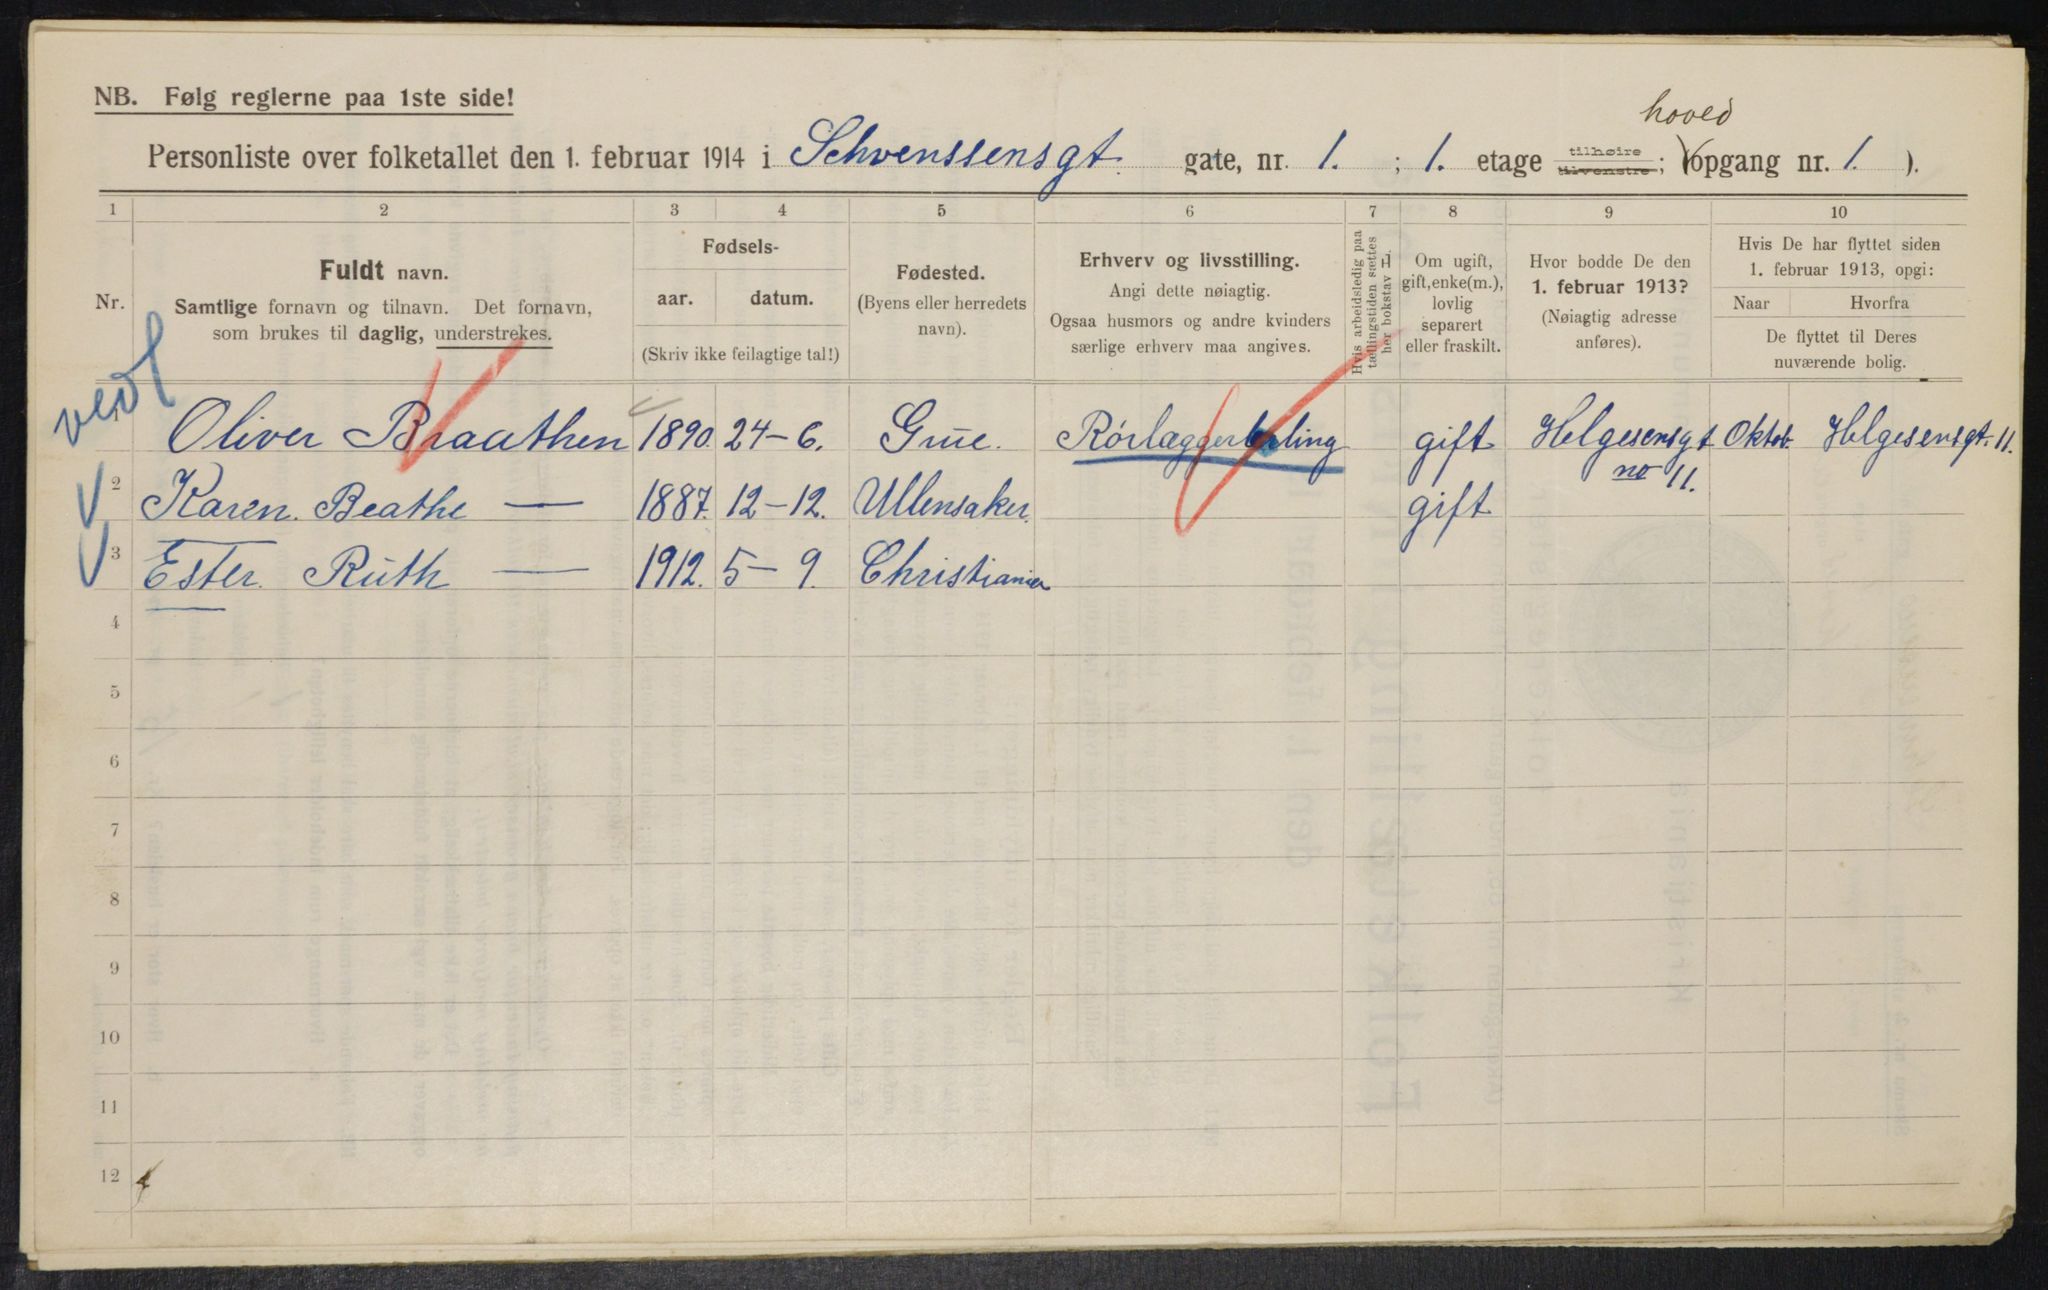 NB. Følg reglerne paa 1ste side!
hoved
Personliste over folketallet den 1. februar 1914 i Schvenssensgt. gate, nr. 1. ; 1. etage tilhøire tilvenstre; (opgang nr. 1. ).
1 2 3 4 5 6 7 8 9 10
Nr.
Fuldt navn.
Samtlige fornavn og tilnavn. Det fornavn,
som brukes til daglig, understrekes.
Fødsels-
aar. datum.
(Skriv ikke feilagtige tal!)
Fødested.
(Byens eller herredets
navn).
Erhverv og livsstilling.
Angi dette nøiagtig.
Ogsaa husmors og andre kvinders
særlige erhverv maa angives.
Hvis arbeidsledig paa
tællingstiden sættes
her bokstav L.
Om ugift,
gift, enke(m.),
lovlig
separert
eller fraskilt.
Hvor bodde De den
1. februar 1913?
(Nøiagtig adresse
anføres).
Hvis De har flyttet siden
1. februar 1913, opgi:
Naar Hvorfra
De flyttet til Deres
nuværende bolig.
vedl
Oliver Braathen 1890. 24-6. Grue. Rörlæggerlærling gift Helgesensgt Oktob. Helgesensgt. 11.
no 11.
2 Karen. Beathe — 1887. 12-12. Ullensaker. gift
3 Ester. Ruth — 1912. 5-9. Christiania
4
5
6
7
8
9
10
11
12